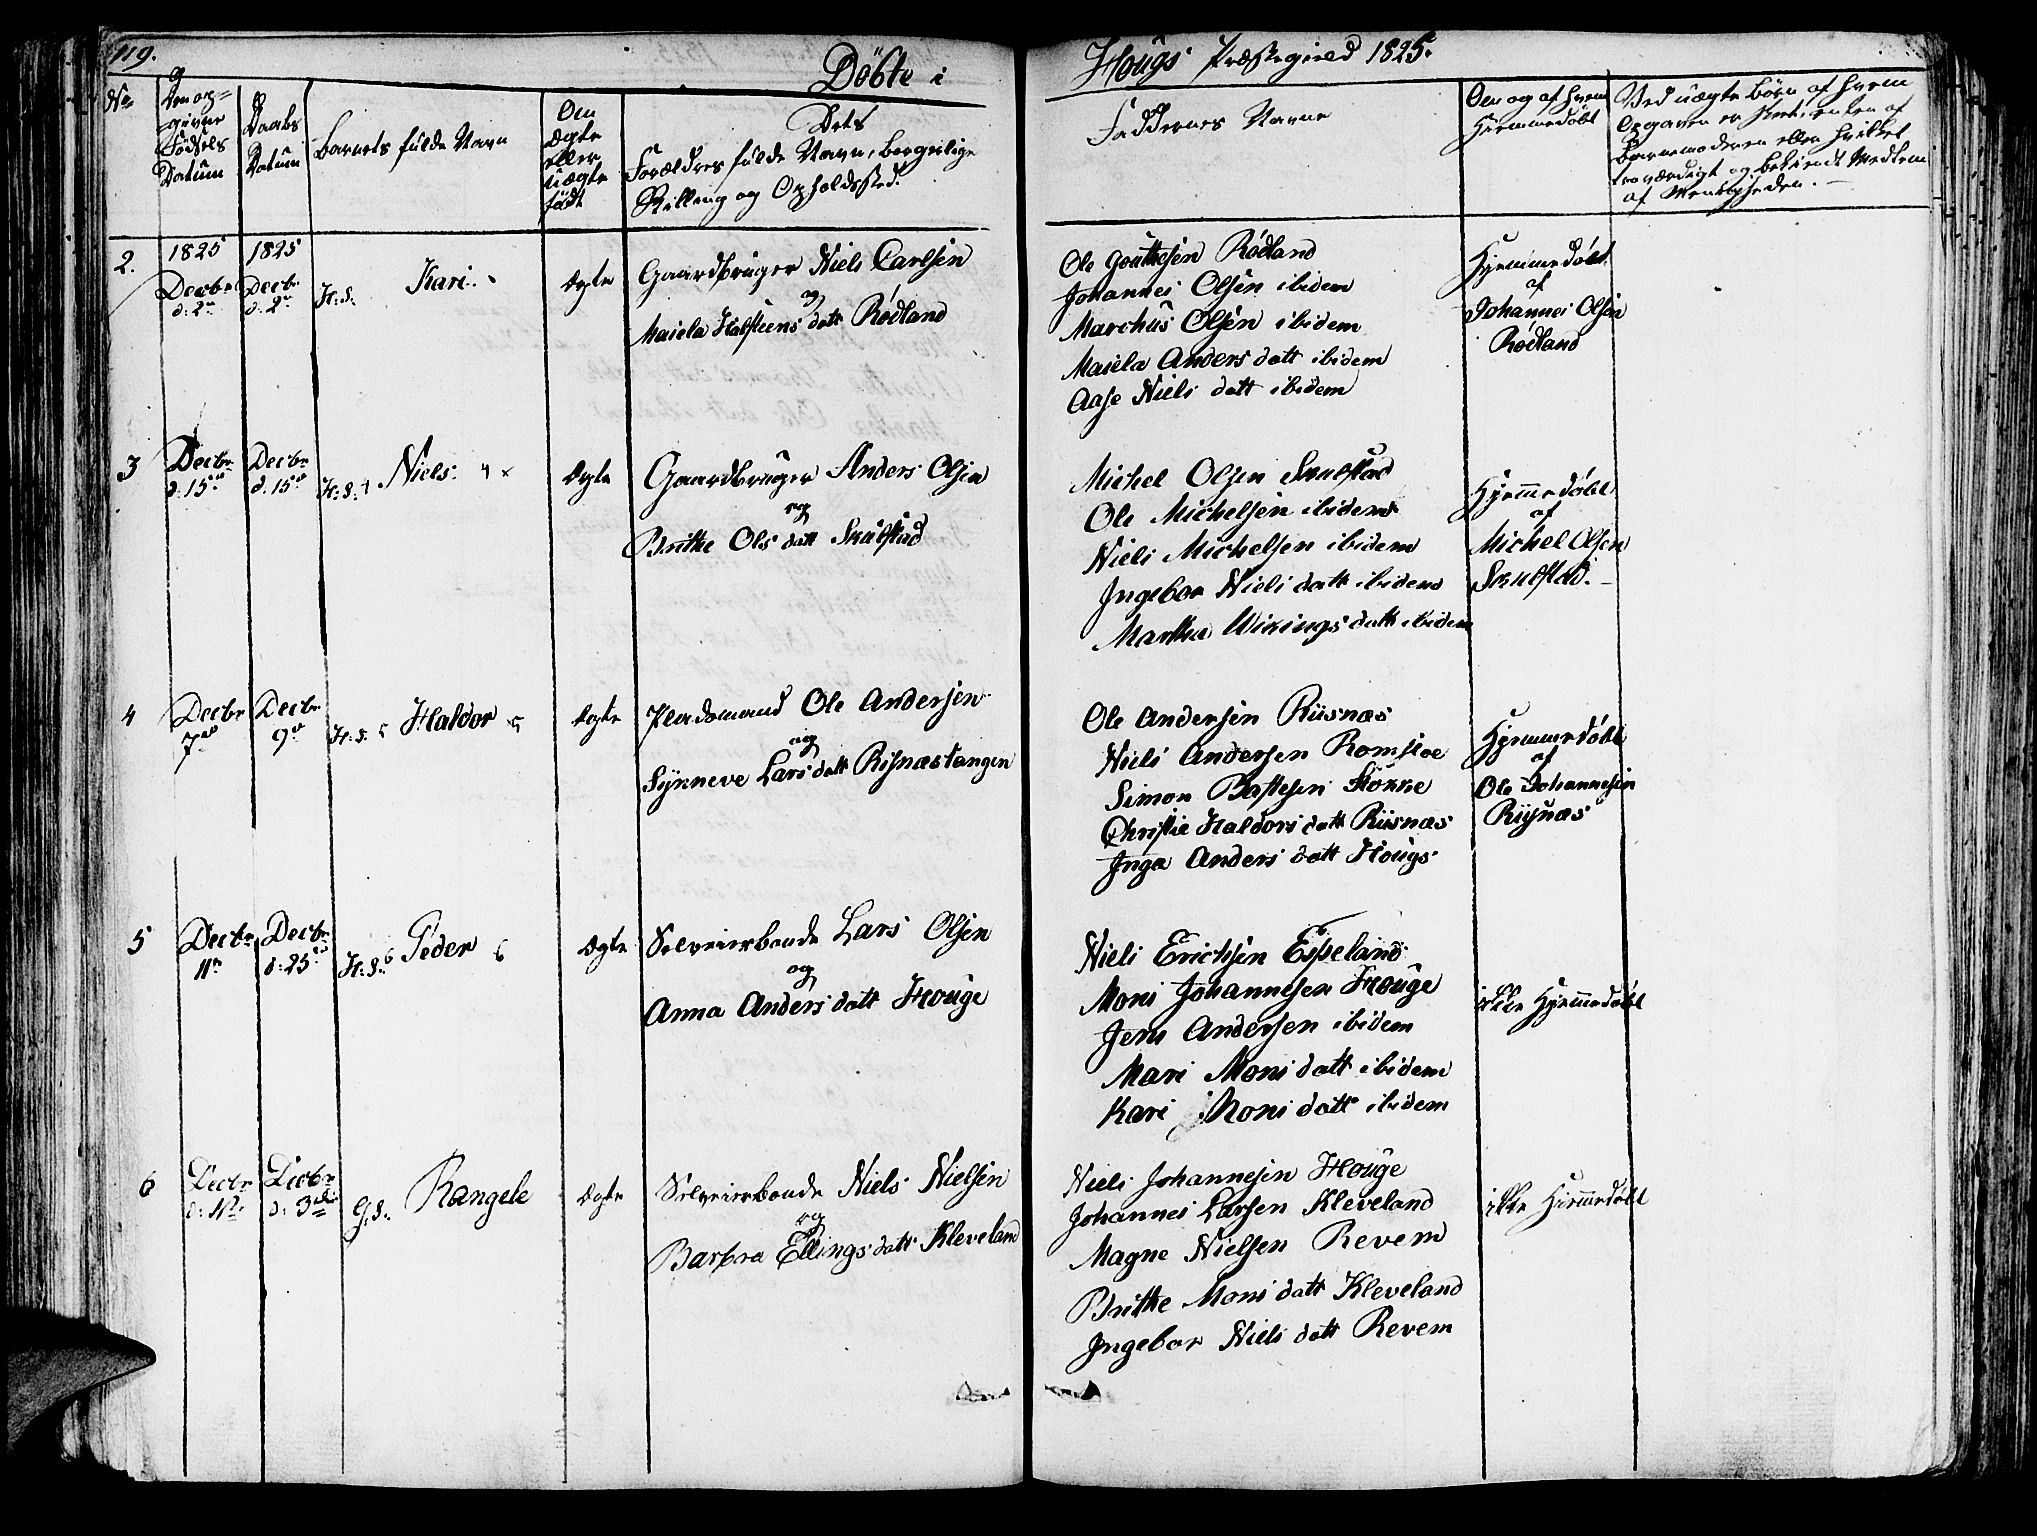 119.
Döbte i
Hougs Præstegield 1825.
No
Den op=
givne
Födsels
Datum
Daabs
Datum
Barnets fulde Navn
Om
ægte
eller
uægte
födt
Dets
Forældres fulde Navn, borgerlige
Stilling og Opholdssted.
Faddernes Navne
Om og af hvem
hiemmedöbt
Ved uægte Börn af hvem
Opgaven er skeet, enten af
Barnemoderen eller hvilket
troværdigt og bekiendt Medlem
af Menigheden. —
2.
1825
Decbr
d: 2n
1825
Decbr
d. 2n
H: S:
Kari.
Ægte
Gaardbruger Niels Carlsen
og
Maiela Halsteens datt Rödland
Ole Gouttesen Rödland
Johannes Olsen ibidem
Marchus Olsen ibidem
Maiela Anders datt ibidem
Aase Niels datt ibidem
Hjemmedöbt
af
Johannes Olsen
Rödland
3
Decbr
d: 15n
Decbr
d. 15n
H: S: 4
Niels. 4 x
Ægte
Gaardbruger Anders Olsen
og
Brithe Ols datt Skulstad
Michel Olsen Skulstad
Ole Michelsen ibidem
Niels Michelsen ibidem
Ingebor Niels datt ibidem
Martha Wikings datt ibidem
Hjemmedöbt
af
Michel Olsen
Skulstad. —
4
Decbr
7n
Decbr
9n
H: S. 5
Haldor 5
Ægte
Pladsmand Ole Andersen
og
Synneve Lars datt Risnæstangen
Ole Andersen Riisnæs
Niels Andersen Romsloe
Simon Bastesen Stokke
Christie Haldors datt Riisnæs
Inga Anders datt Hougs
Hjemmedöbt
af
Ole Johannesen
Riisnæs
5
Decbr
11n
Decbr
d: 25n
H: S: 6
Peder 6
Ægte
Selveierbonde Lars Olsen
og
Anna Anders datt Houge
Niels Erichsen Espeland
Mons Johannesen Houge
Jens Andersen ibidem
Mari Mons datt ibidem
Kari Mons datt ibidem
ikke Hjemmedöbt
6
Decbr
Decbr
G: S:
Rangele
Ægte
Selveierbonde Niels Nielsen
og
Barbra Ellings datt Kleveland
Niels Johannesen Houge
Johannes Larsen Kleveland
Magne Nielsen Revem
Brithe Mons datt Kleveland
Ingebor Niels datt Revem
ikke Hiemmedöbt